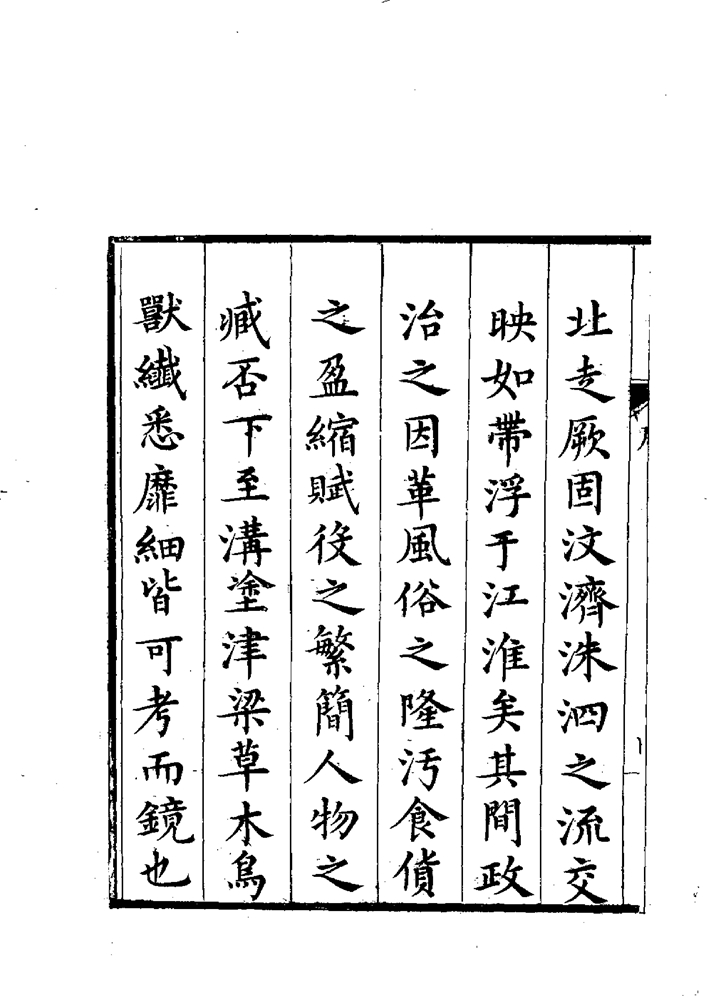 北走厥固汶濟洙泗之流交
映如帶浮于江淮矣其間政
治之因革風俗之隆污食貨
之盈縮賦役之繁簡人物之
臧否下至溝塗津梁草木鳥
獸纖悉靡細皆可考而鏡也